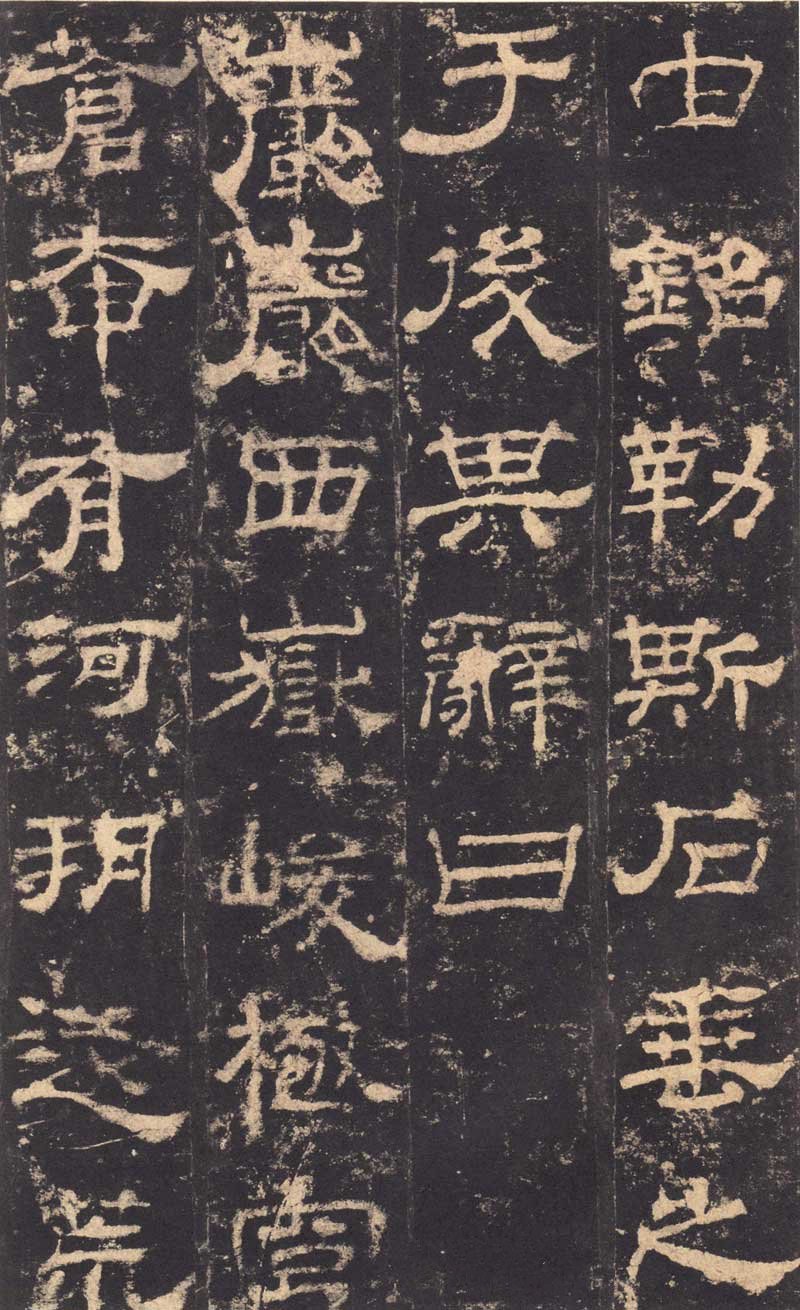 由銘勒斯石垂之
于後其辭曰
巖巖西嶽峻極穹
蒼奄有河朔遂荒